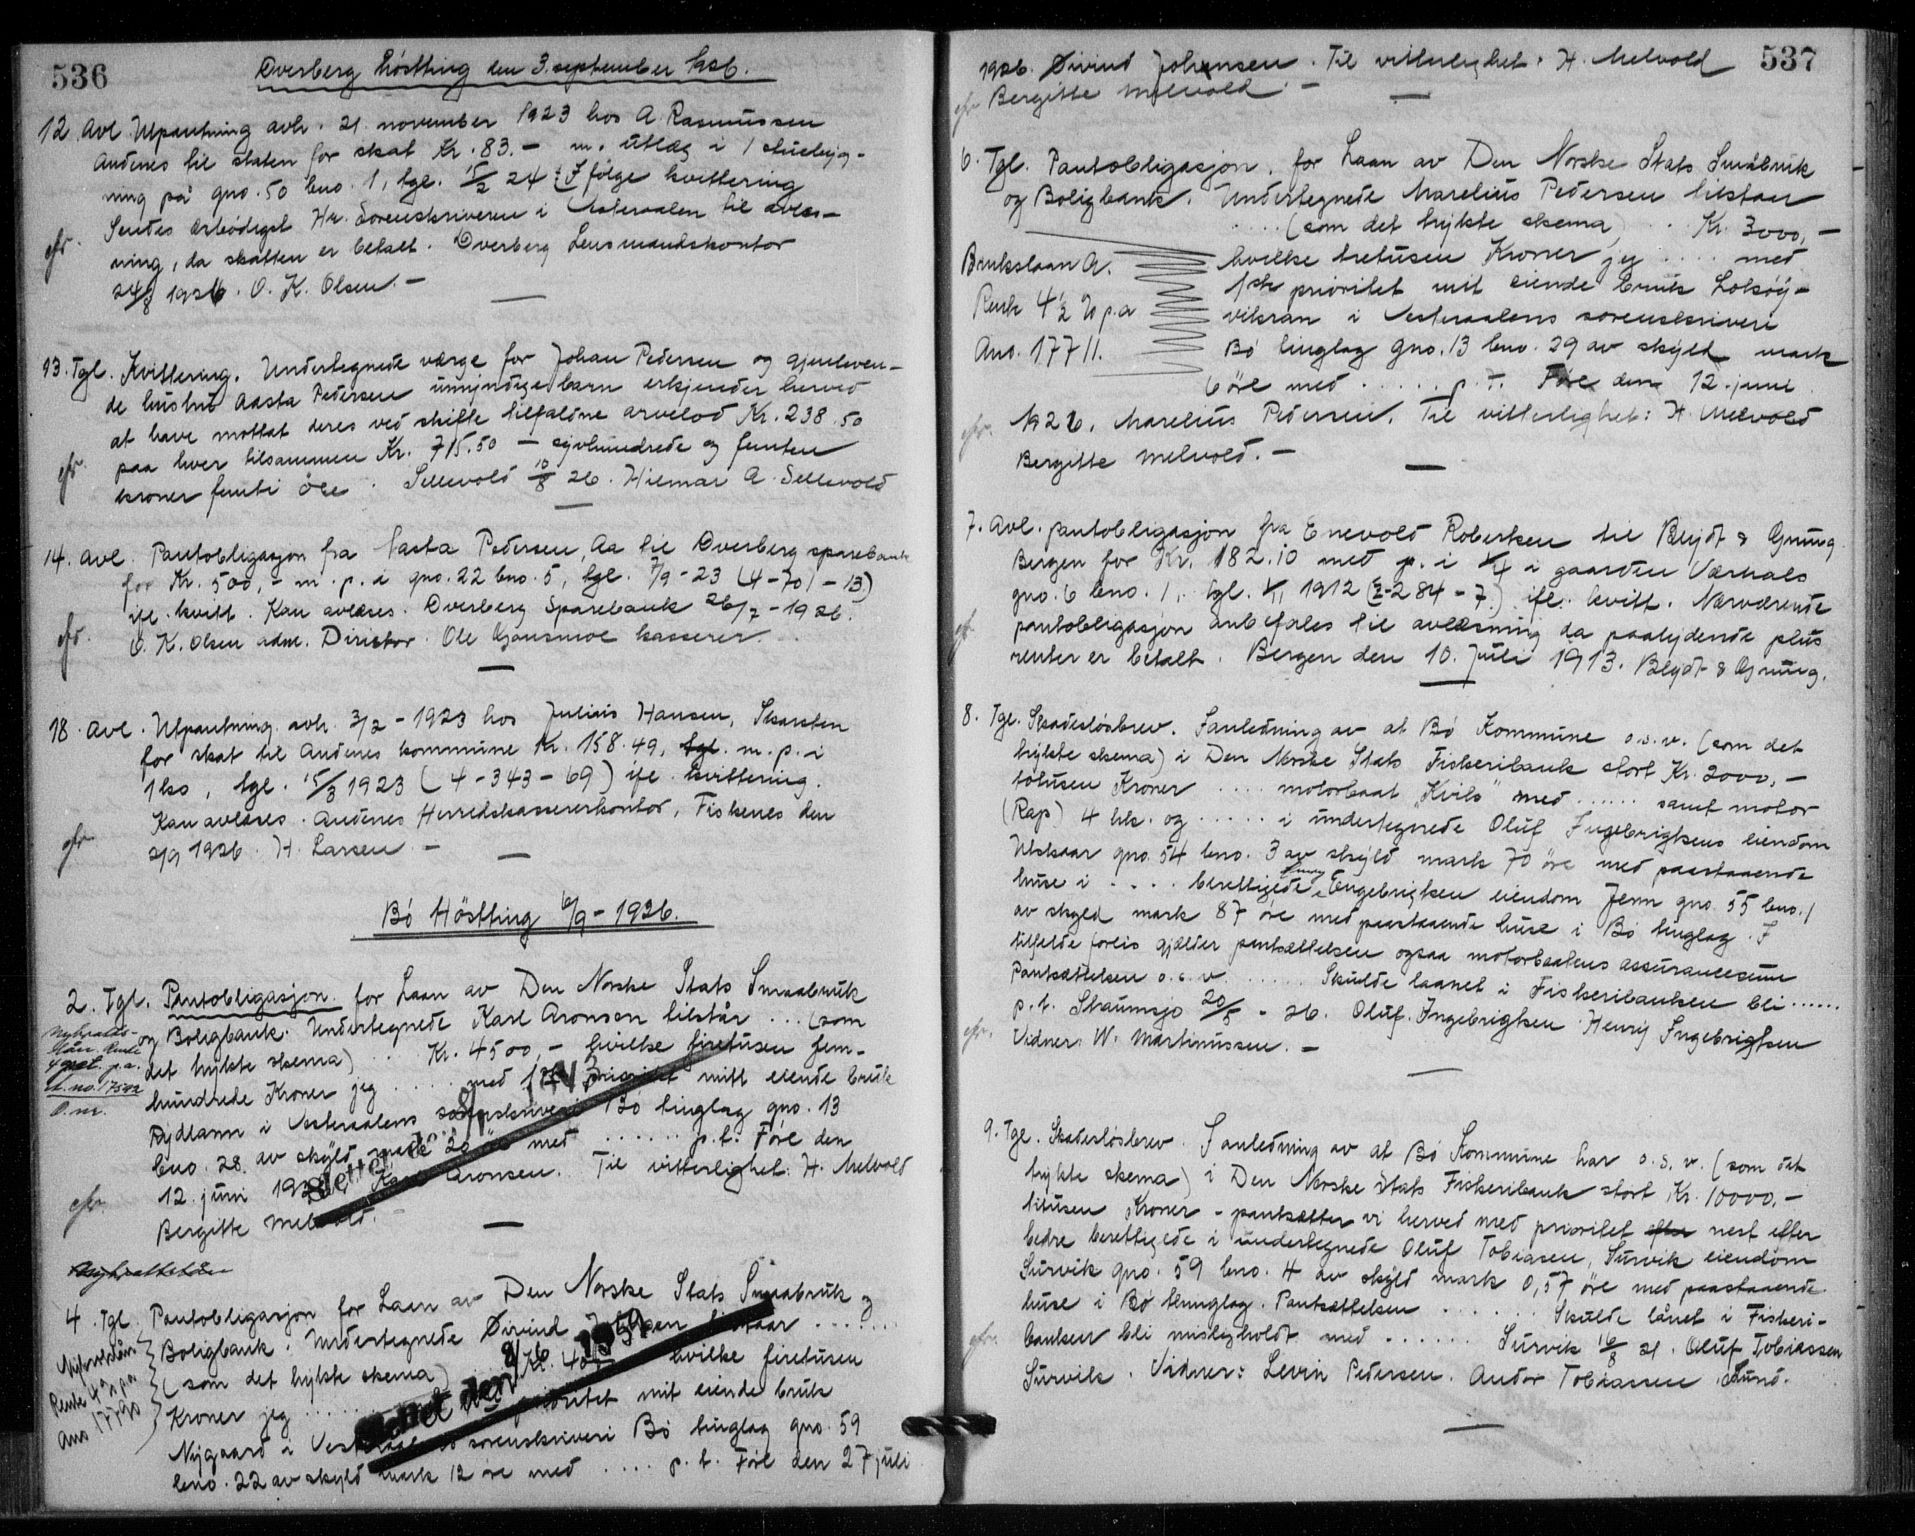 536
Dverberg høstting den 3. september 1926.
12 Avl. Utpantning avh. 21. november 1923 hos A. Rasmussen
Andenes til staten for skat Kr. 83.- m. utlæg i 1 stuebyg-
ning på gno. 50 bno. 1, tgl. 15/2 24 Ifølge kvittering
Sendes ærbødigst Hr. Sorenskriveren i Vesteraalen til avlæs-
ning, da skatten er betalt. Dverberg Lensmandskontor
24/8 1926. O. K. Olsen. -
13. Tgl. Kvittering. Undertegnede værge for Johan Pedersen og gjenleven-
de hustru Aasta Pedersen umyndige barn erkjender herved
at have mottat deres ved skifte tilfaldne arvelod Kr. 238.50
paa hver tilsammen Kr. 715.50 - syvhundrede og femten
kroner femti øre. Sellevold 10/8 26. Hilmar A. Sellevold
14. Avl. Pantobligasjon fra Aasta Pedersen, Aa til Dverberg sparebank
for Kr. 500,- m. p. i gno. 22 bno. 5, tgl. 7/9-23 (4-701-13)
ifl. kvitt. Kan avlæses. Dverberg Sparebank 26/7-1926.
O. K. Olsen adm. Direktør. Ole kasserer.
18. Avl. Utpantning avh. 3/2-1923 hos Julius Hansen, Skarsten
for skat til Andenes kommune Kr. 158.49, tgl. m. p. i
1 ko, tgl. 15/3 1923 (4-343-69) ifl. kvittering.
Kan avlæses. Andenes Herredskassererkontor, Fiskenes den
2/9 1926. H. Larsen -
Bø Høstting 6/9-1926.
2. Tgl. Pantobligasjon for Laan av Den Norske Stats Smaabruk
og Boligbank. Undertegnede Karl Aronsen tilstår ... (som
det trykte skema) .. Kr. 4500,- hvilke firetusen fem-
hundrede Kroner jeg ..... med 1ste prioritet mitt eiende bruk
Rydland i Vesteraalens sorenskriveri Bø tinglag gno. 13
bno. 28 av skyld mark 20 øre med ...... p.t. Føre den
12. juni 1926. Karl Aronsen. Til vitterlighet: H. Melvold
Bergitte Melvold. -
4. Tgl. Pantobligasjon for Laan av Den Norske Stats Smaabruk og
Boligbank. Undertegnede Øivind Johansen tilstaar .......
(som det trykte skema) Kr. hvilke firetusen
Kroner jeg ....... prioritet mit eiende bruk
Nygaard i Vesteraalens sorenskriveri Bø tinglag gno. 59
bno. 22 av skyld mark 12 øre med .... p.t. Føre den 27 juli
Slettet den 8/6 1959
537
1926. Øivind Johansen. Til vitterlighet: H. Melvold
Bergitte Melvold. -
6. Tgl. Pantobligasjon, for Laan av Den Norske Stats Småbruk
og Boligbank. Undertegnede Marelius Pedersen tilstaar
.... (som det trykte skema) .. Kr. 3000,-
Brukslaan A.
Rente 4½ % p.a
Ano. 17711.
hvilke tretusen Kroner jeg .... med
1ste prioritet mit eiende bruk
i Vesteraalens sorenskriveri
Bø tinglag gno. 13 bno. 29 av skyld mark
6 øre med ..... p.t. Føre den 12. juni
1926. Marelius Pedersen. Til vitterlighet: H. Melvold
Bergitte Melvold. -
7. Avl. pantobligasjon fra Enevold Robertsen til Blydt & Gnung
Bergen for Kr. 182.10 med p. i 1/4 i gaarden Værhals
gno. 6 bno. 1, tgl. 1/11 1912 (2-284-7.) ifl. kvitt. Nærværende
pantobligasjon anbefales til avlæsning da paalydende plus
renter er betalt. Bergen den 10. juli 1913. Blydt & Gnung.
8. Tgl. Skadesløsbrev. I anledning av at Bø Kommune o.s.v. (som det
trykte skema) i Den Norske Stats Fiskeribank stort Kr. 2000,-
totusen Kroner .... motorbaat "Kvik" med ...... samt motor
(Rap) 4 hk. og ..... i undertegnede Oluf Ingebrigtsens eiendom
Utskaar gno. 54 bno. 3 av skyld mark 70 øre med paastaaende
huse i .... berettigede Henry Ingebrigtsen eiendom Jenn gno. 55 bno. 1
av skyld mark 87 øre med paastaaende huse i Bø tinglag. I
tilfælde forlis gjælder pantsættelsen ogsaa motorbaatens assurancesum
Pantsættelsen o.s.v. ...... Skulde laanet i Fiskeribanken bli ......
p.t. Straumsjø 20/8-26. Oluf Ingebrigtsen Henry Ingebrigtsen
Vidner: W. Martinussen. -
9. Tgl. Skadesløsbrev. I anledning av at Bø Kommune har o.s.v. (som det
trykte skema) i Den Norske Stats Fiskeribank stort Kr. 10000,-
titusen Kroner - pantsætter vi herved med prioritet efter nest efter
bedre berettigede i undertegnede Oluf Tobiasen, Survik eiendom
Survik gno. 59 bno. 4 av skyld mark 0,57 øre med paastaaende
huse i Bø tinglag. Pantsættelsen ...... Skulde lånet i Fiskeri-
banken bli misligholdt med ...... Survik 16/8 21. Oluf Tobiassen
Survik. Vidner: Levin Pedersen. Andor Tobiassen Sund.